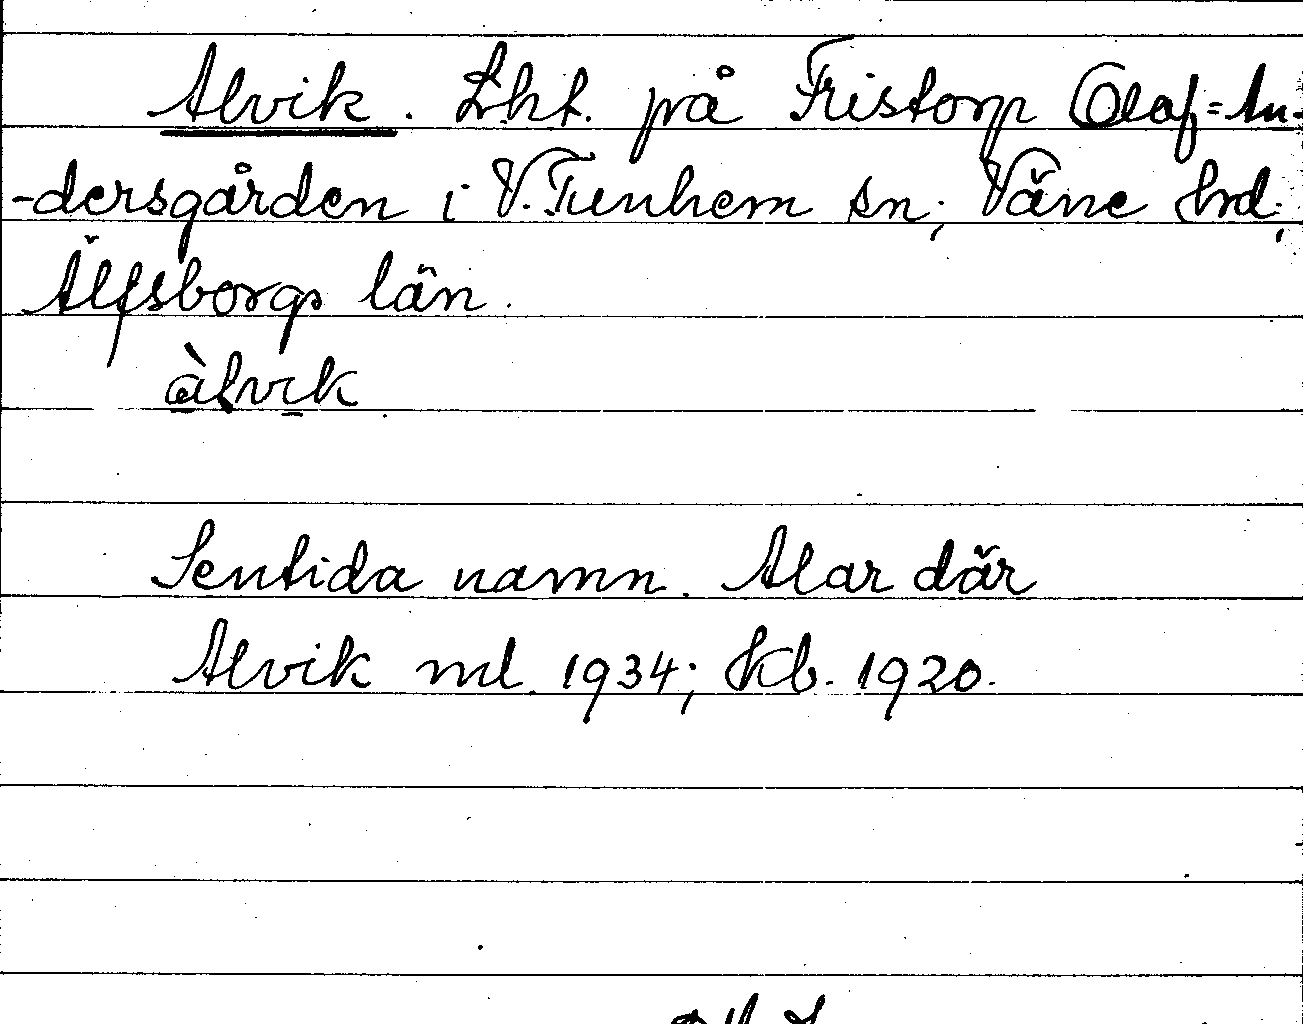 Alvik. Lht. på Fristorp Olof=An-
-dersgården i V. Tunhem sn; Väne hrd;
Älfsborgs län.
àlvik
Sentida namn. Alar där
Alvik ml. 1934; Kb. 1920.